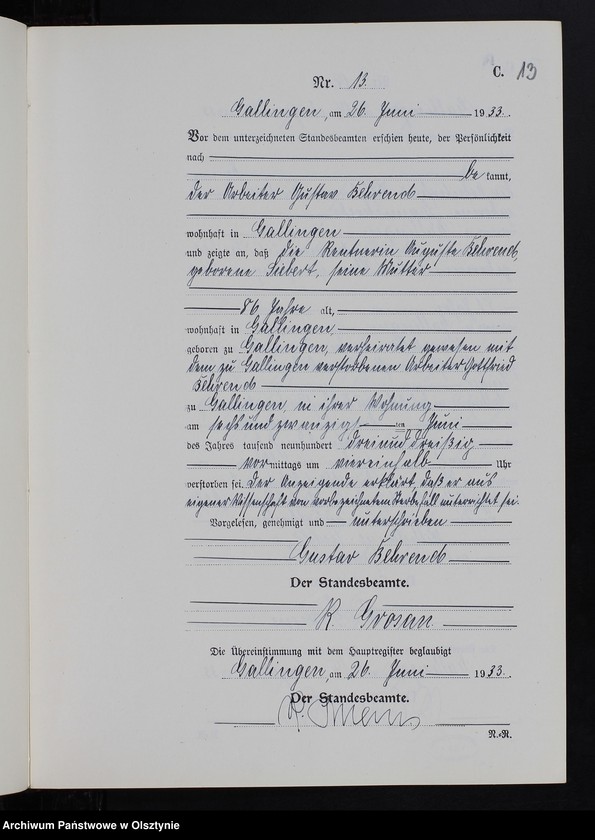 C. 13
Nr. 13.
Gallingen, am 26. Juni 1933.
Vor dem unterzeichneten Standesbeamten erschien heute, der Persönlichkeit
nach
be kannt,
der Arbeiter Gustav Behrend
wohnhaft in Gallingen
und zeigte an, daß die Rentnerin Auguste Behrend,
geborene Siebert, seine Mutter
86 Jahre alt,
wohnhaft in Gallingen,
geboren zu Gallingen, verheiratet gewesen mit
dem zu Gallingen verstorbenen Arbeiter Gottfried
Behrend
zu Gallingen, in ihrer Wohnung
am sechsundzwanzigsten Juni
des Jahres tausend neunhundert dreiunddreißig
vor mittags um viereinhalb Uhr
verstorben sei. Der Anzeigende erklärt, daß er aus
eigener Wissenschaft von vorbezeichnetem Sterbefall unterrichtet sei.
Vorgelesen, genehmigt und unterschrieben
Gustav Behrend
Der Standesbeamte.
R.
Die Übereinstimmung mit dem Hauptregister beglaubigt
Gallingen, am 26. Juni 1933.
Der Standesbeamte.
R.
N.-R.
Archiwum Państwowe w Olsztynie